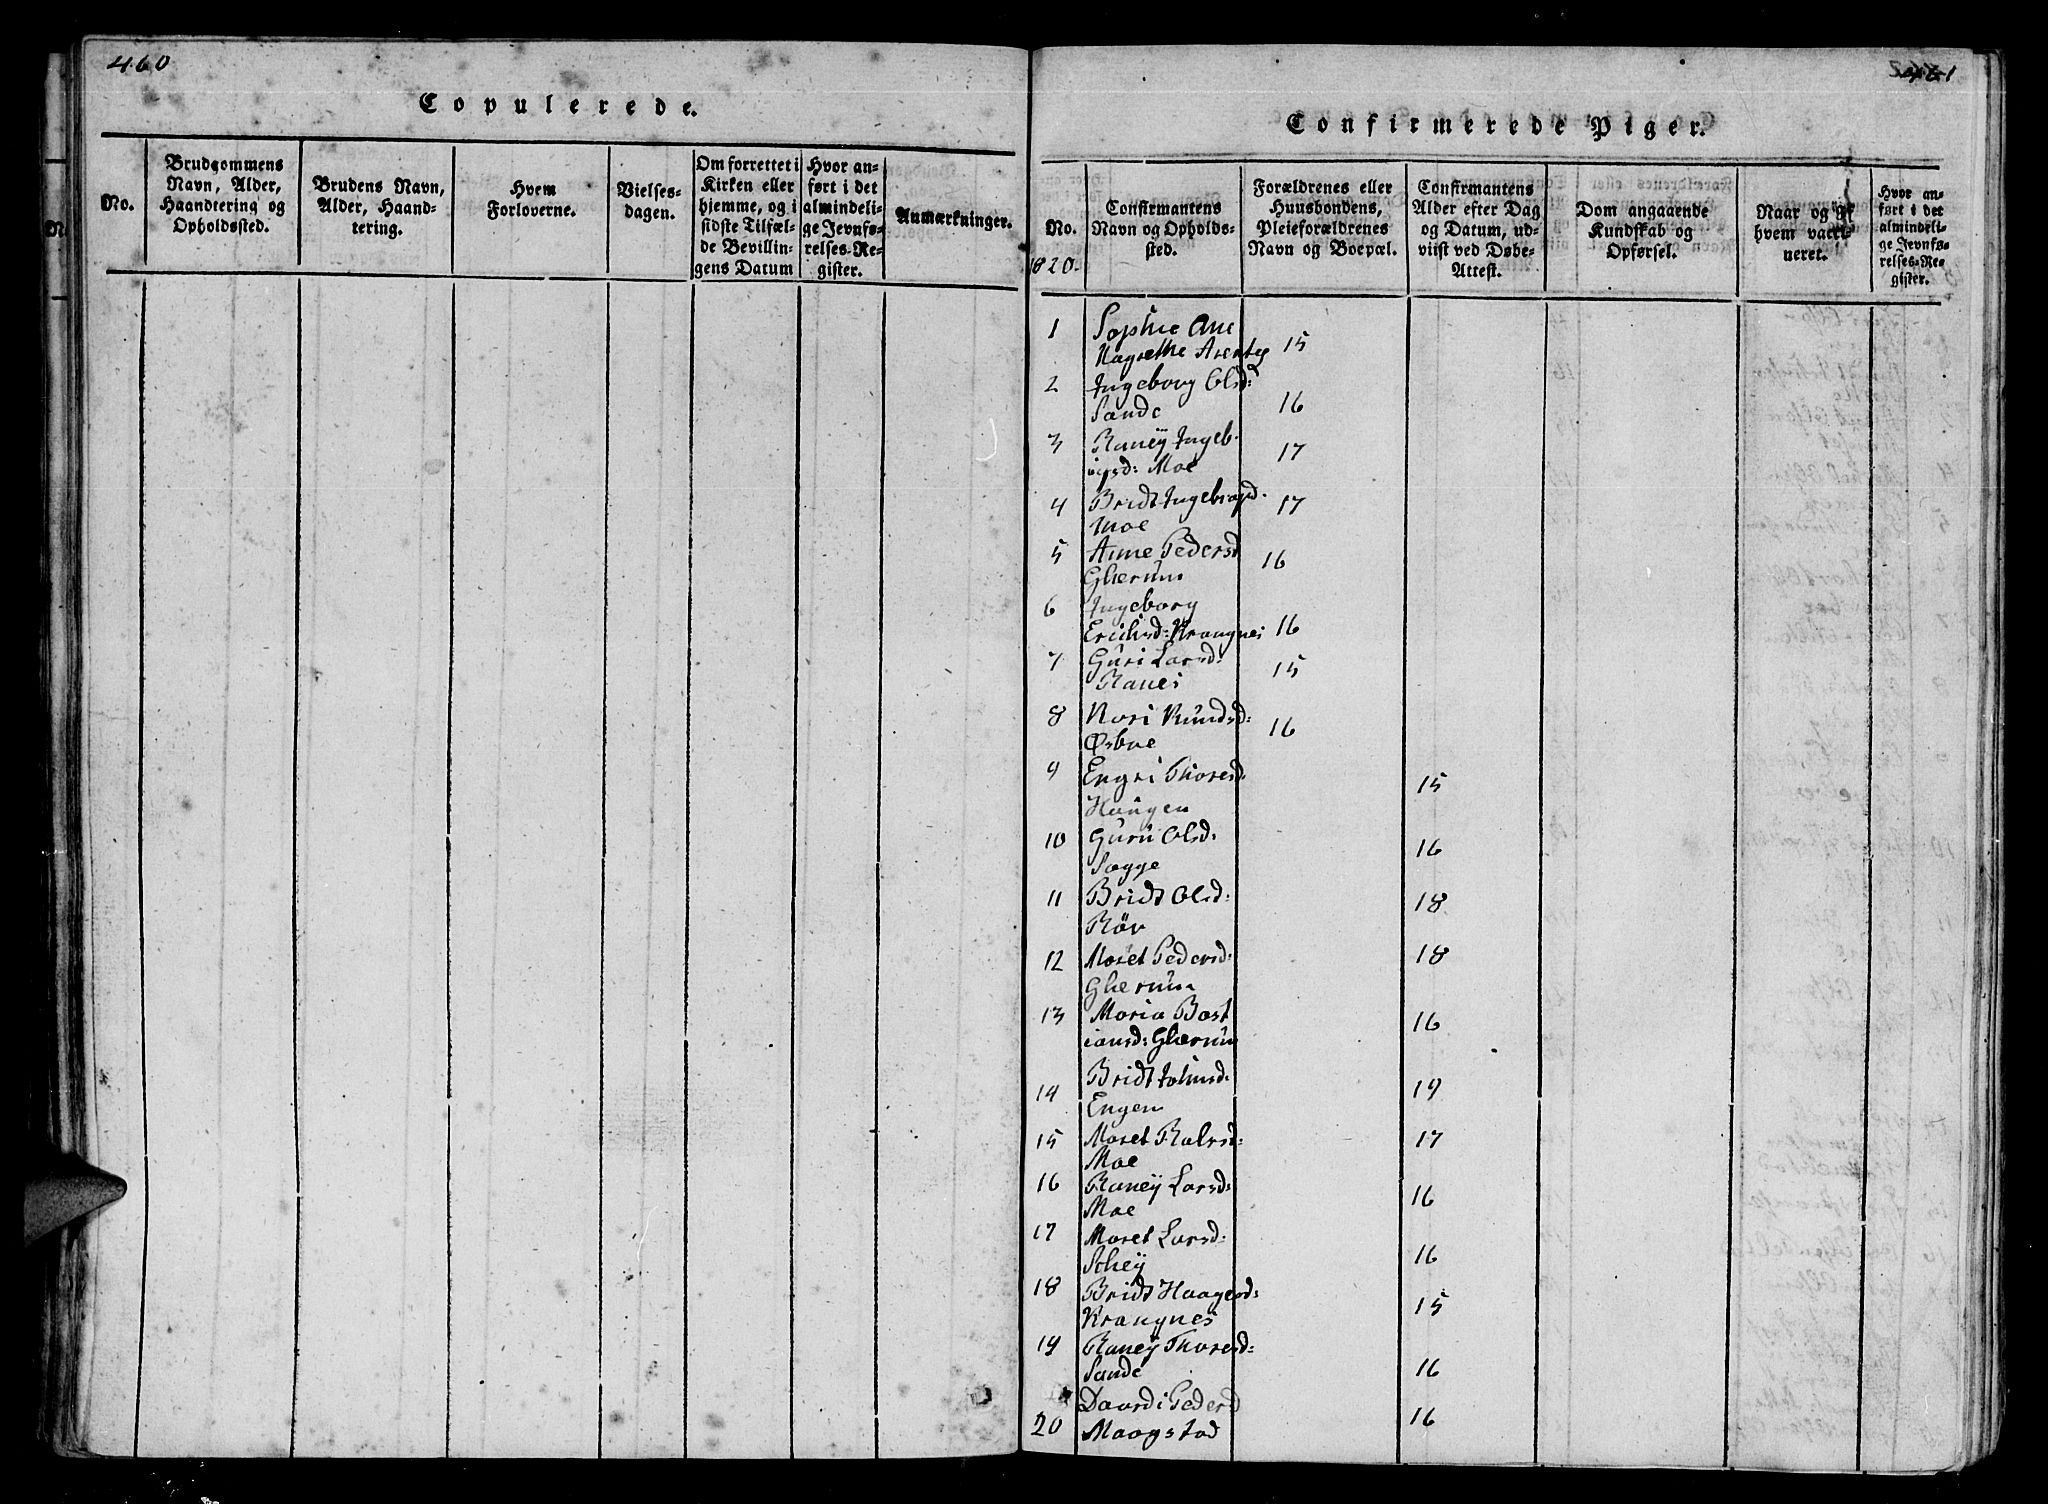 460
Copulerede.
No.
Brudgommens
Navn, Alder,
Haandtering og
Opholdssted.
Brudens Navn,
Alder, Haand-
tering.
Hvem
Forloverne.
Vielses-
dagen.
Om forrettet i
Kirken eller
hjemme, og i
sidste Tilfæl-
de Bevillin-
gens Datum
Hvor an-
ført i det
almindeli-
ge Jevnfø-
relses-Re-
gister.
Anmærkninger.
461
Confirmerede Piger.
No.
1820.
Confirmantens
Navn og Opholds-
sted.
Forældrenes eller
Huusbondens,
Pleieforældrenes
Navn og Boepæl.
Confirmantens
Alder efter Dag
og Datum, ud-
viist ved Døbe-
Attest.
Dom angaaende
Kundskab og
Opførsel.
Naar og af
hvem vacci-
neret.
Hvor an-
ført i det
almindeli-
ge Jevnfø-
relses-Re-
gister.
1 Sophie Ane
Magrethe 15
2 Ingeborg Olsd:
Sande 16
3 Raneÿ Ingeb-
Moe 17
4 Bridt
Moe 17
5 Anne Pedersd
Glærum 16
6 Ingeborg
Erichsd: Krangnes 16
7 Guri Larsd:
Ranes 15
8 Kari Knudsd:
Øsbue 16
9 Engri Thoresd:
Haugen 15
10 Guru Olsd:
Sægge 16
11 Bridt Olsd:
Röv 18
12 Maret Pedersd:
Glærum 18
13 Maria Bast
iansd: Glærum 16
14 Bridt Johnsd:
Engen 19
15 Maret
Moe 17
16 Raneÿ Larsd:
Moe 16
17 Maret Larsd:
Scheÿ 16
18 Bridt Haagensd:
Krangnes 15
19 Raneÿ Thoresd=
Sande 16
20 Daardi Pedersd
Maagstad 16